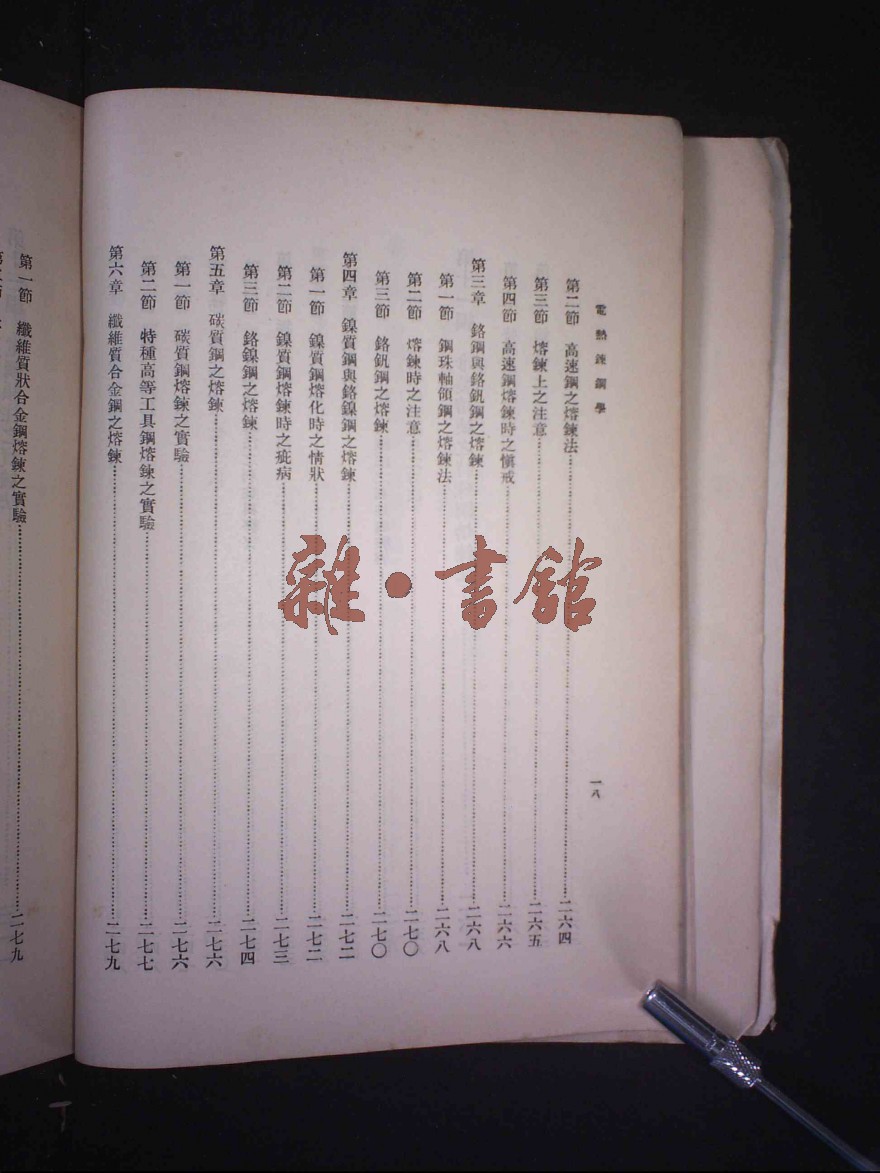 電熱鍊鋼學
一八
第二節 高速鋼之熔鍊法……二六四
第三節 熔鍊上之注意……二六五
第四節 高速鋼熔鍊時之慎戒……二六六
第三章 鉻鋼與鉻釩鋼之熔鍊……二六八
第一節 鋼珠軸領鋼之熔鍊法……二六八
第二節 熔鍊時之注意……二七〇
第三節 鉻釩鋼之熔鍊……二七〇
第四章 鎳質鋼與鉻鎳鋼之熔鍊……二七二
第一節 鎳質鋼熔化時之情狀……二七二
第二節 鎳質鋼熔鍊時之疵病……二七三
第三節 鉻鎳鋼之熔鍊……二七四
第五章 碳質鋼之熔鍊……二七六
第一節 碳質鋼熔鍊之實驗……二七六
第二節 特種高等工具鋼熔鍊之實驗……二七七
第六章 纖維質合金鋼之熔鍊……二七九
第一節 纖維質狀合金鋼熔鍊之實驗……二七九
雜·書館